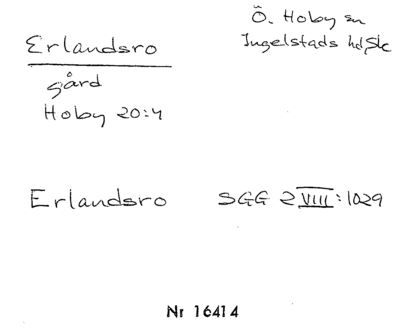 Erlandsro
Ö. Hoby sn
Ingelstads hd, Sk
gård
Hoby 20:4
Erlandsro
SGG 2 VIII:1029
Nr 16414